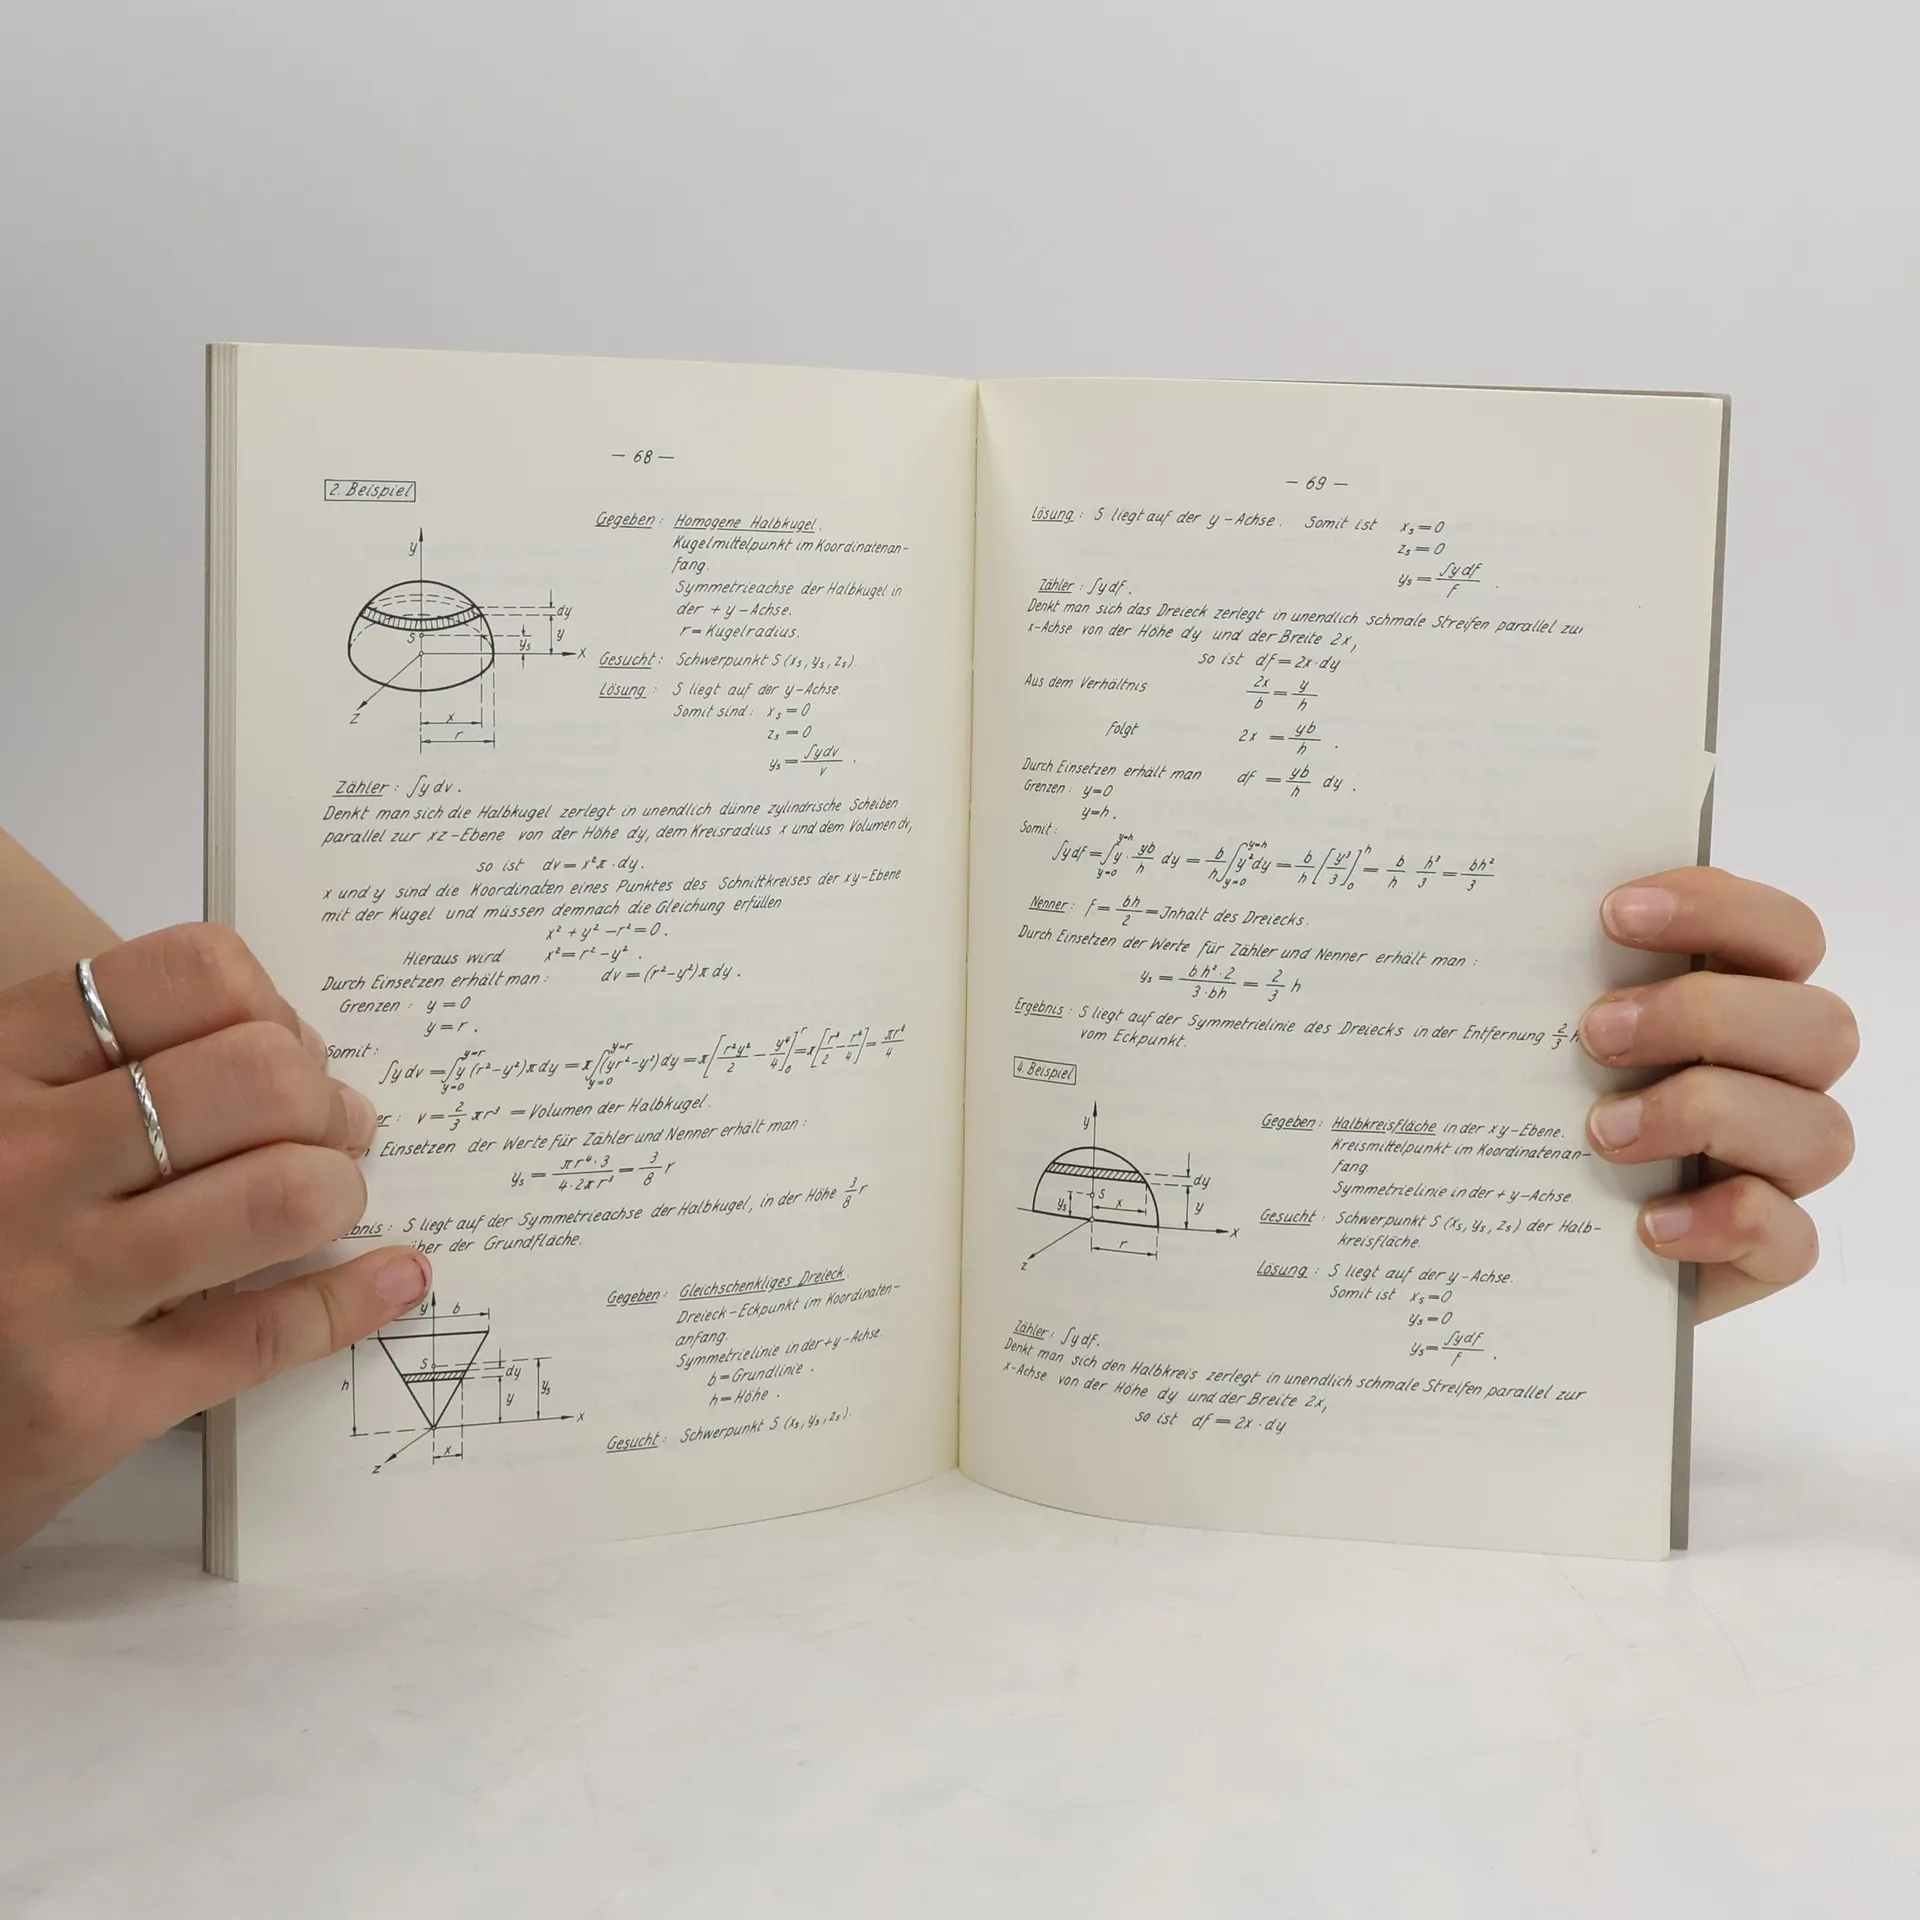 — 68 —
2. Beispiel
Gegeben: Homogene Halbkugel.
Kugelmittelpunkt im Koordinatenan-
fang.
Symmetrieachse der Halbkugel in
der + y – Achse.
r = Kugelradius.
Gesucht: Schwerpunkt S (xₛ, yₛ, zₛ).
Lösung: S liegt auf der y – Achse.
Somit sind: xₛ = 0
zₛ = 0
yₛ = ∫y dv / v .
y
dy
y
S
yₛ
x
z
x
r
Zähler: ∫y dv .
Denkt man sich die Halbkugel zerlegt in unendlich dünne zylindrische Scheiben
parallel zur xz – Ebene von der Höhe dy, dem Kreisradius x und dem Volumen dv,
so ist dv = x²π · dy.
x und y sind die Koordinaten eines Punktes des Schnittkreises der xy – Ebene
mit der Kugel und müssen demnach die Gleichung erfüllen
x² + y² – r² = 0 .
Hieraus wird x² = r² – y² .
Durch Einsetzen erhält man: dv = (r² – y²) π dy .
Grenzen: y = 0
y = r .
Somit:
∫y dv = ∫_{y=0}^{y=r} y (r² – y²) π dy = π ∫_{y=0}^{y=r} (yr² – y³) dy = π [r²y²/2 – y⁴/4]₀ʳ = π [r⁴/2 – r⁴/4] = πr⁴/4
er: v = 2/3 πr³ = Volumen der Halbkugel.
Einsetzen der Werte für Zähler und Nenner erhält man:
yₛ = πr⁴·3 / 4·2πr³ = 3/8 r
bnis: S liegt auf der Symmetrieachse der Halbkugel, in der Höhe 3/8 r
über der Grundfläche.
Gegeben: Gleichschenkliges Dreieck.
Dreieck – Eckpunkt im Koordinaten-
anfang.
Symmetrielinie in der + y – Achse.
b = Grundlinie .
h = Höhe .
Gesucht: Schwerpunkt S (xₛ, yₛ, zₛ).
y
b
S
dy
h
y
yₛ
x
z
x
— 69 —
Lösung: S liegt auf der y – Achse. Somit ist xₛ = 0
zₛ = 0
yₛ = ∫y df / f .
Zähler: ∫y df .
Denkt man sich das Dreieck zerlegt in unendlich schmale Streifen parallel zur
x-Achse von der Höhe dy und der Breite 2x,
so ist df = 2x · dy
Aus dem Verhältnis 2x/b = y/h
folgt 2x = yb/h .
Durch Einsetzen erhält man df = yb/h dy .
Grenzen: y = 0
y = h .
Somit:
∫y df = ∫_{y=0}^{y=h} y · yb/h dy = b/h ∫_{y=0}^{y=h} y² dy = b/h [y³/3]₀ʰ = b/h h³/3 = bh²/3
Nenner: f = bh/2 = Inhalt des Dreiecks.
Durch Einsetzen der Werte für Zähler und Nenner erhält man:
yₛ = bh²·2 / 3·bh = 2/3 h
Ergebnis: S liegt auf der Symmetrielinie des Dreiecks in der Entfernung 2/3 h
vom Eckpunkt.
4. Beispiel
Gegeben: Halbkreisfläche in der xy – Ebene.
Kreismittelpunkt im Koordinatenan-
fang.
Symmetrielinie in der + y – Achse.
Gesucht: Schwerpunkt S (xₛ, yₛ, zₛ) der Halb-
kreisfläche.
Lösung: S liegt auf der y – Achse.
Somit ist xₛ = 0
yₛ = 0
yₛ = ∫y df / f .
y
dy
S
yₛ
x
y
x
r
z
Zähler: ∫y df.
Denkt man sich den Halbkreis zerlegt in unendlich schmale Streifen parallel zur
x-Achse von der Höhe dy und der Breite 2x,
so ist df = 2x · dy